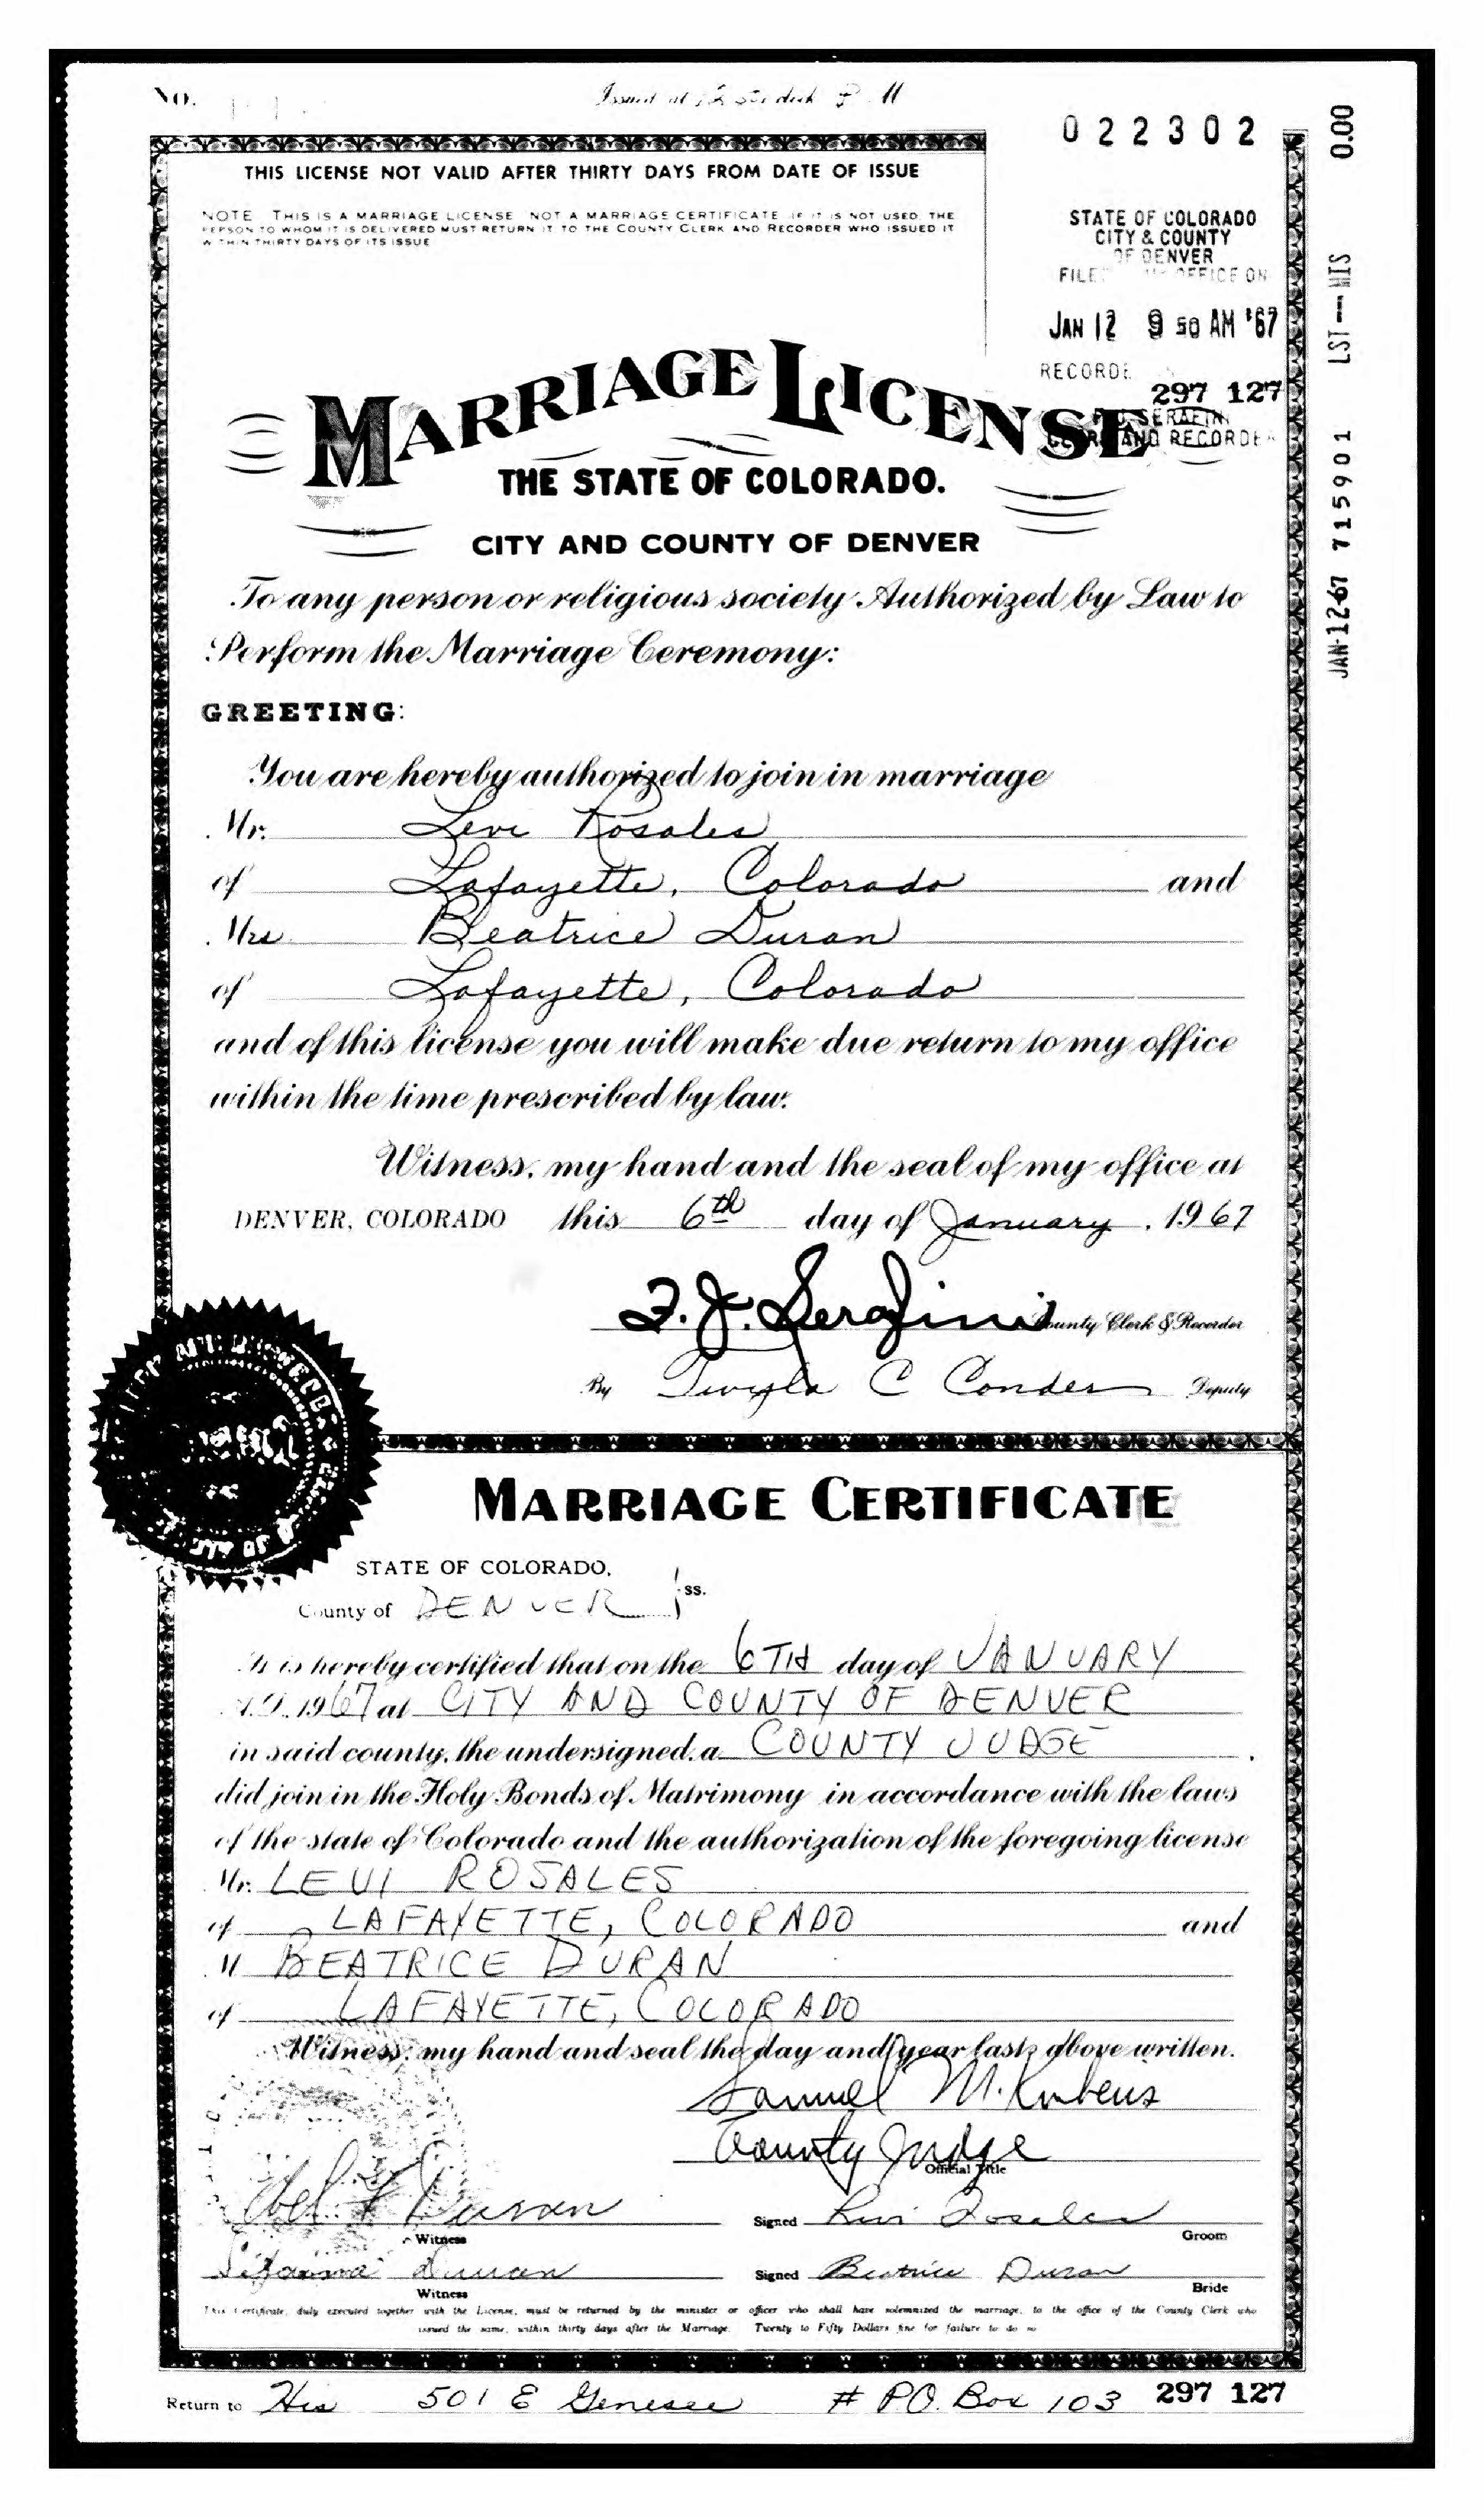 No.
Issued at
022302
0.00
THIS LICENSE NOT VALID AFTER THIRTY DAYS FROM DATE OF ISSUE
NOTE THIS IS A MARRIAGE LICENSE NOT A MARRIAGE CERTIFICATE IF IT IS NOT USED, THE
PERSON TO WHOM IT IS DELIVERED MUST RETURN IT TO THE COUNTY CLERK AND RECORDER WHO ISSUED IT
WITHIN THIRTY DAYS OF ITS ISSUE
STATE OF COLORADO
CITY & COUNTY
OF DENVER
FILED OFFICE ON
JAN 12 9 50 AM '67
RECORDE
297 127
SERAFINI
CLERK AND RECORDER
LST—MIS
JAN-12-67 715901
MARRIAGE LICENSE
THE STATE OF COLORADO.
CITY AND COUNTY OF DENVER
To any person or religious society Authorized by Law to
Perform the Marriage Ceremony:
GREETING:
You are hereby authorized to join in marriage
Mr. Levi Rosales
of Lafayette, Colorado and
Mrs. Beatrice Duran
of Lafayette, Colorado
and of this license you will make due return to my office
within the time prescribed by law.
Witness, my hand and the seal of my office at
DENVER, COLORADO this 6th day of January, 1967
F. J. Serafini County Clerk & Recorder
By Twyla C Conder Deputy
MARRIAGE CERTIFICATE
STATE OF COLORADO,
County of DENVER ss.
It is hereby certified that on the 6TH day of JANUARY
A.D. 1967 at CITY AND COUNTY OF DENVER
in said county, the undersigned, a COUNTY JUDGE
did join in the Holy Bonds of Matrimony in accordance with the laws
of the state of Colorado and the authorization of the foregoing license
Mr. LEVI ROSALES
of LAFAYETTE, COLORADO and
M BEATRICE DURAN
of LAFAYETTE, COLORADO
Witness, my hand and seal the day and year last above written.
Samuel M. Kubens
County Judge
Official Title
Abel Duran Signed Levi Rosales
Witness Groom
Duran Signed Beatrice Duran
Witness Bride
This Certificate, duly executed together with the License, must be returned by the minister or officer who shall have solemnized the marriage, to the office of the County Clerk who
issued the same, within thirty days after the Marriage. Twenty to Fifty Dollars fine for failure to do so
Return to His 501 E Genesee # PO. Box 103 297 127